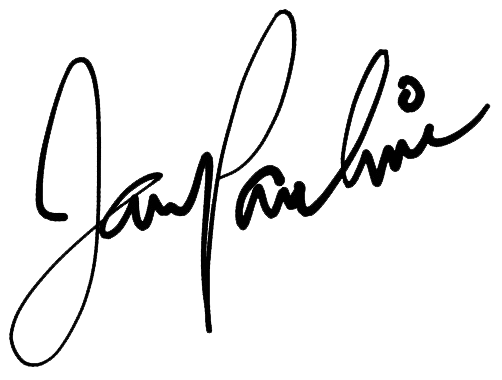 Jan Pauline